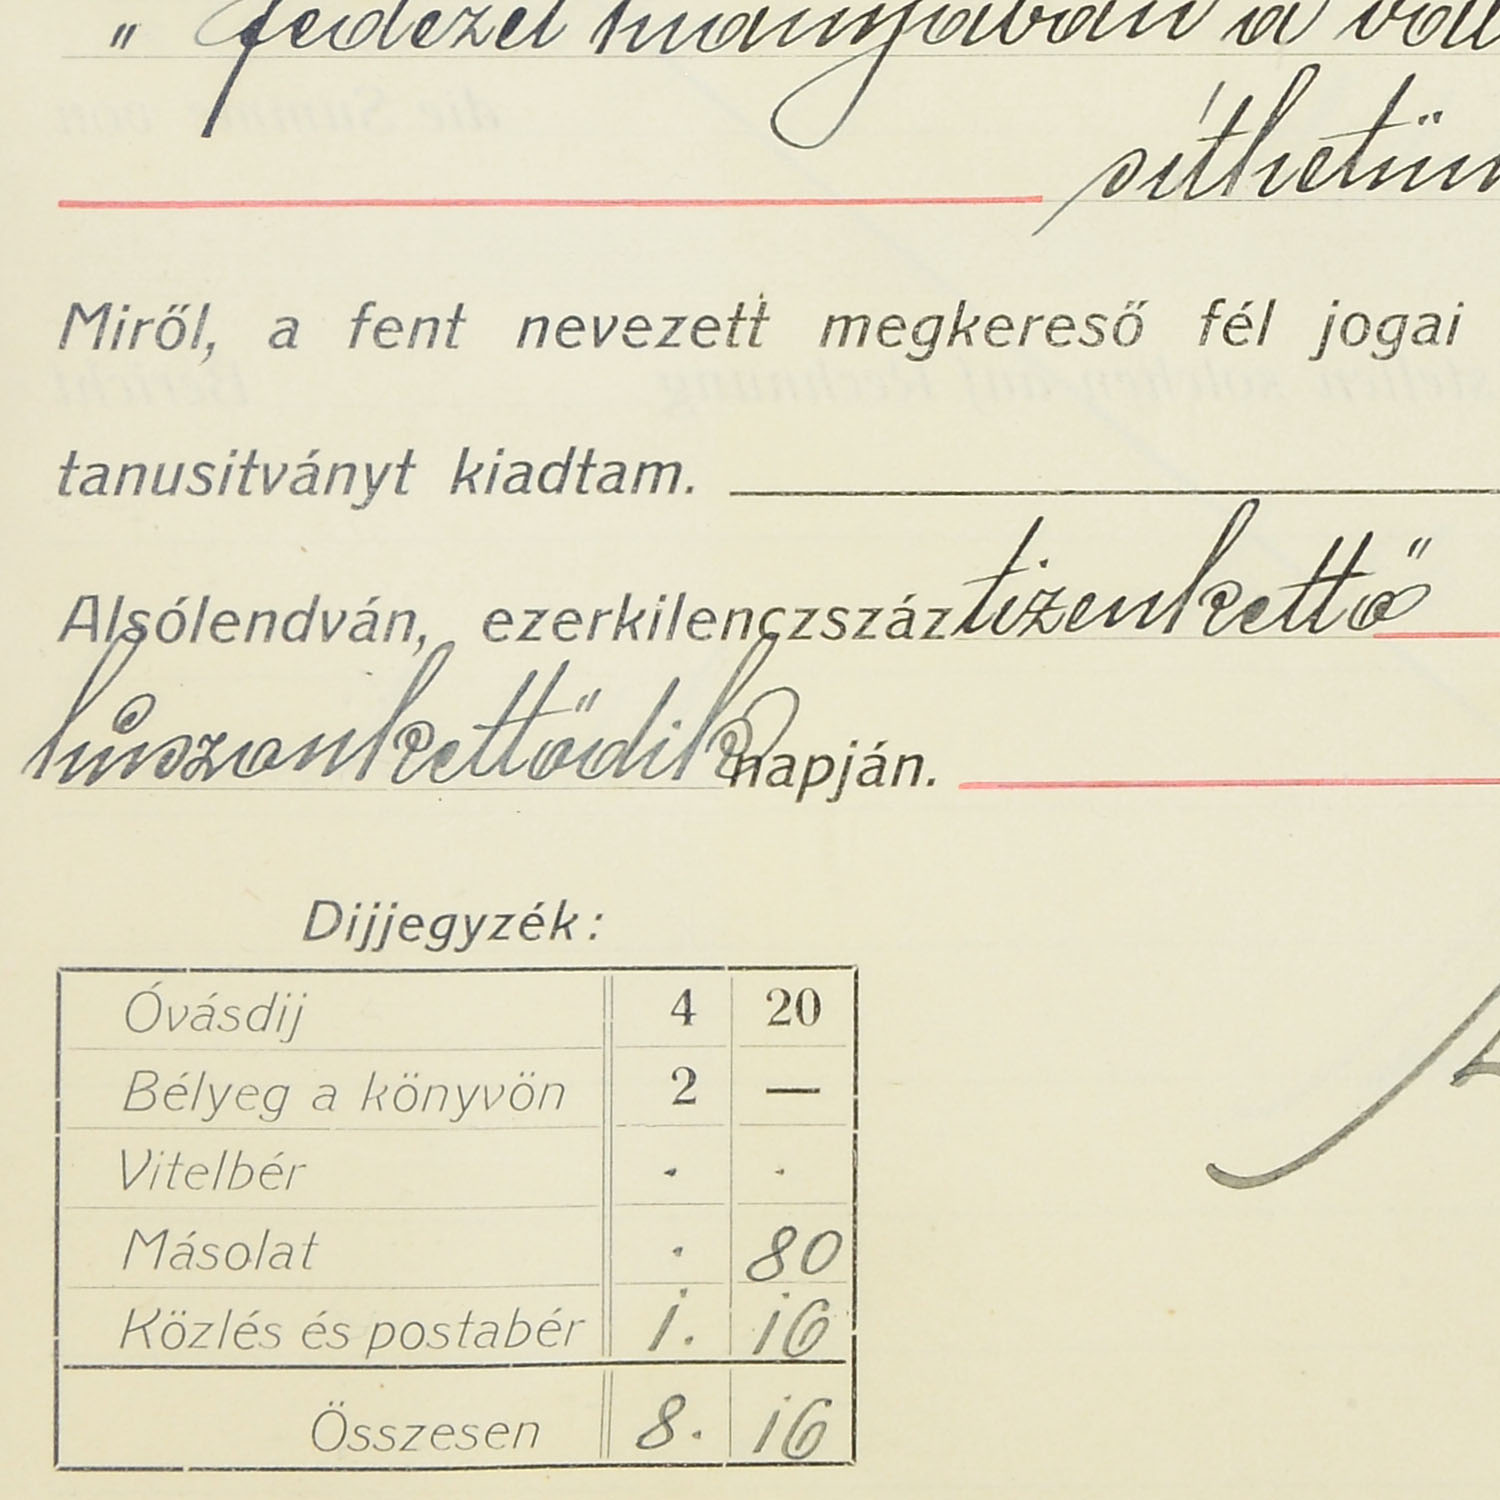 " fedezet hiányában a
síthetün
Miről, a fent nevezett megkereső fél jogai
tanusitványt kiadtam.
Alsólendván, ezerkilenczszáz tizenkettő
húszonkettődik napján.
Dijjegyzék:
Óvásdij 4 20
Bélyeg a könyvön 2 —
Vitelbér . .
Másolat . 80
Közlés és postabér 1. 16
Összesen 8. 16